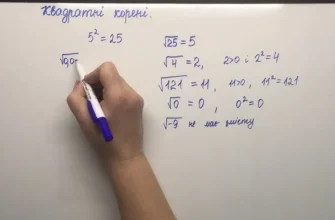 Квадратні корені.
5² = 25
√0,0
√25 = 5
√4 = 2, 2>0 і 2² = 4
√121 = 11, 11>0, 11² = 121
√0 = 0, 0² = 0
√-9 не має змісту